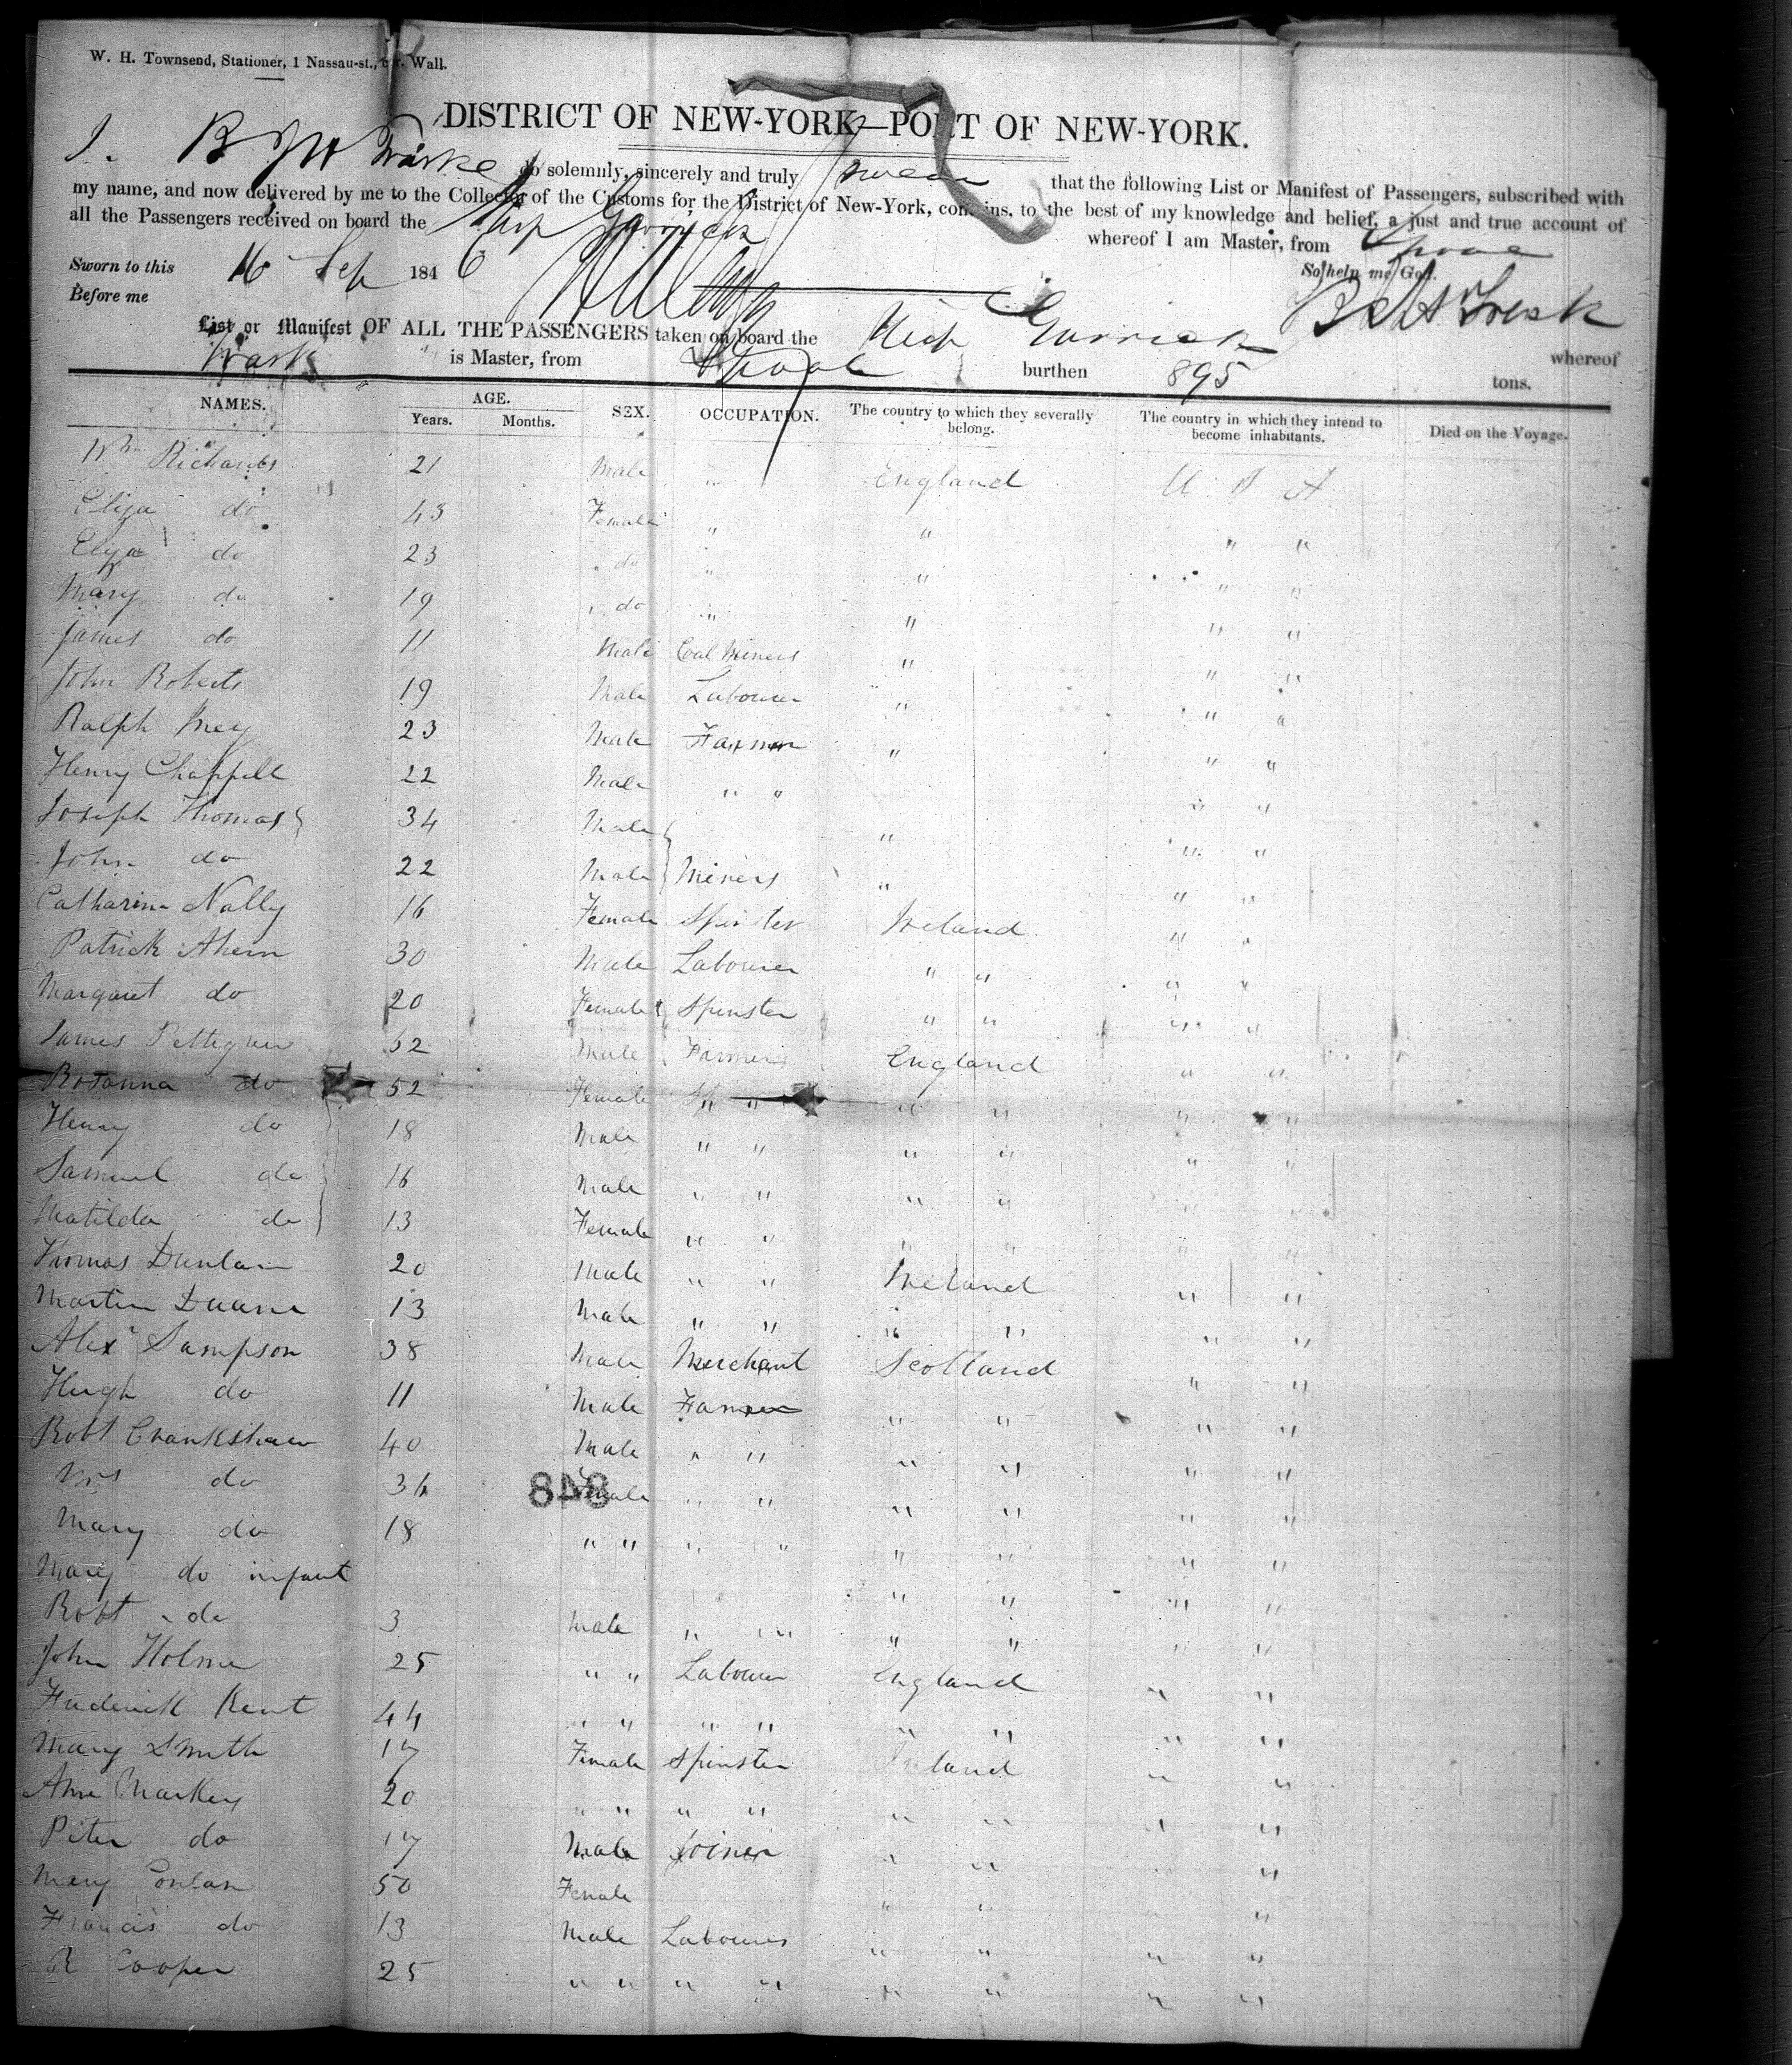 W. H. Townsend, Stationer, 1 Nassau-st., cor. Wall.
DISTRICT OF NEW-YORK—PORT OF NEW-YORK.
I. B I H Trask do solemnly, sincerely and truly swear that the following List or Manifest of Passengers, subscribed with
my name, and now delivered by me to the Collector of the Customs for the District of New-York, contains, to the best of my knowledge and belief, a just and true account of
all the Passengers received on board the Ship Garrick whereof I am Master, from Lpool
Sworn to this 16 Sep 1846 So help me God.
Before me Trask
List or Manifest OF ALL THE PASSENGERS taken on board the Garrick whereof
Trask is Master, from Lpool burthen 895 tons.
NAMES. AGE. Years. Months. SEX. OCCUPATION. The country to which they severally belong. The country in which they intend to become inhabitants. Died on the Voyage.
Wm Richards 21 Male " England U S A
Eliza do 43 Female " " " "
Eliza do 23 do " " " "
Mary do 19 do " " " "
James do 11 Male Coal Miners " " "
John Roberts 19 Male Labourer " " "
Ralph 23 Male Farmer " " "
Henry Chappell 22 Male " " " "
Joseph Thomas 34 Male " " "
John do 22 Male Miners " " "
Catharine Nally 16 Female Spinster Ireland " "
Patrick Ahern 30 Male Labourer " " " "
Margaret do 20 Female Spinster " " " "
James Pettigrew 52 Male Farmer England " "
Rosanna do 52 Female Sp " " " " " "
Henry do 18 Male " " " " " "
Samuel do 16 Male " " " " " "
Matilda do 13 Female " " " " " "
Thomas Dunlain 20 Male " " Ireland " "
Martin Duane 13 Male " " " " " "
Alexr Sampson 38 Male Merchant Scotland " "
Hugh do 11 Male Farmer " " " "
Robt Crankshaw 40 Male " " " " " "
Mrs do 36 Female " " " " " "
848
Mary do 18 " " " " " " " "
Mary do infant " " " "
Robt do 3 Male " " " " " "
John Holme 25 " " Labourer England " "
Frederick Kent 44 " " " " " " " "
Mary Smith 17 Female Spinster Ireland " "
Ann Markey 20 " " " " " " " "
Peter do 17 Male Joiner " " " "
Mary Conlan 50 Female " " " "
Francis do 13 Male Labourer " " " "
R Cooper 25 " " " " " " " "